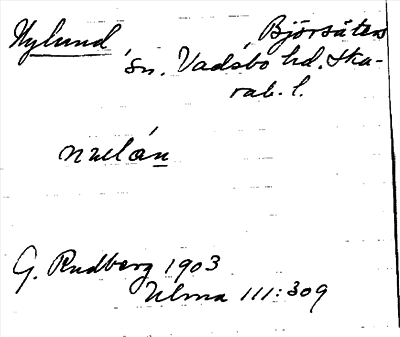 Nylund Björsäters
sn. Vadsbo hd. Ska-
rab. l.
nulán
G. Rudberg 1903
Ulma 111:309